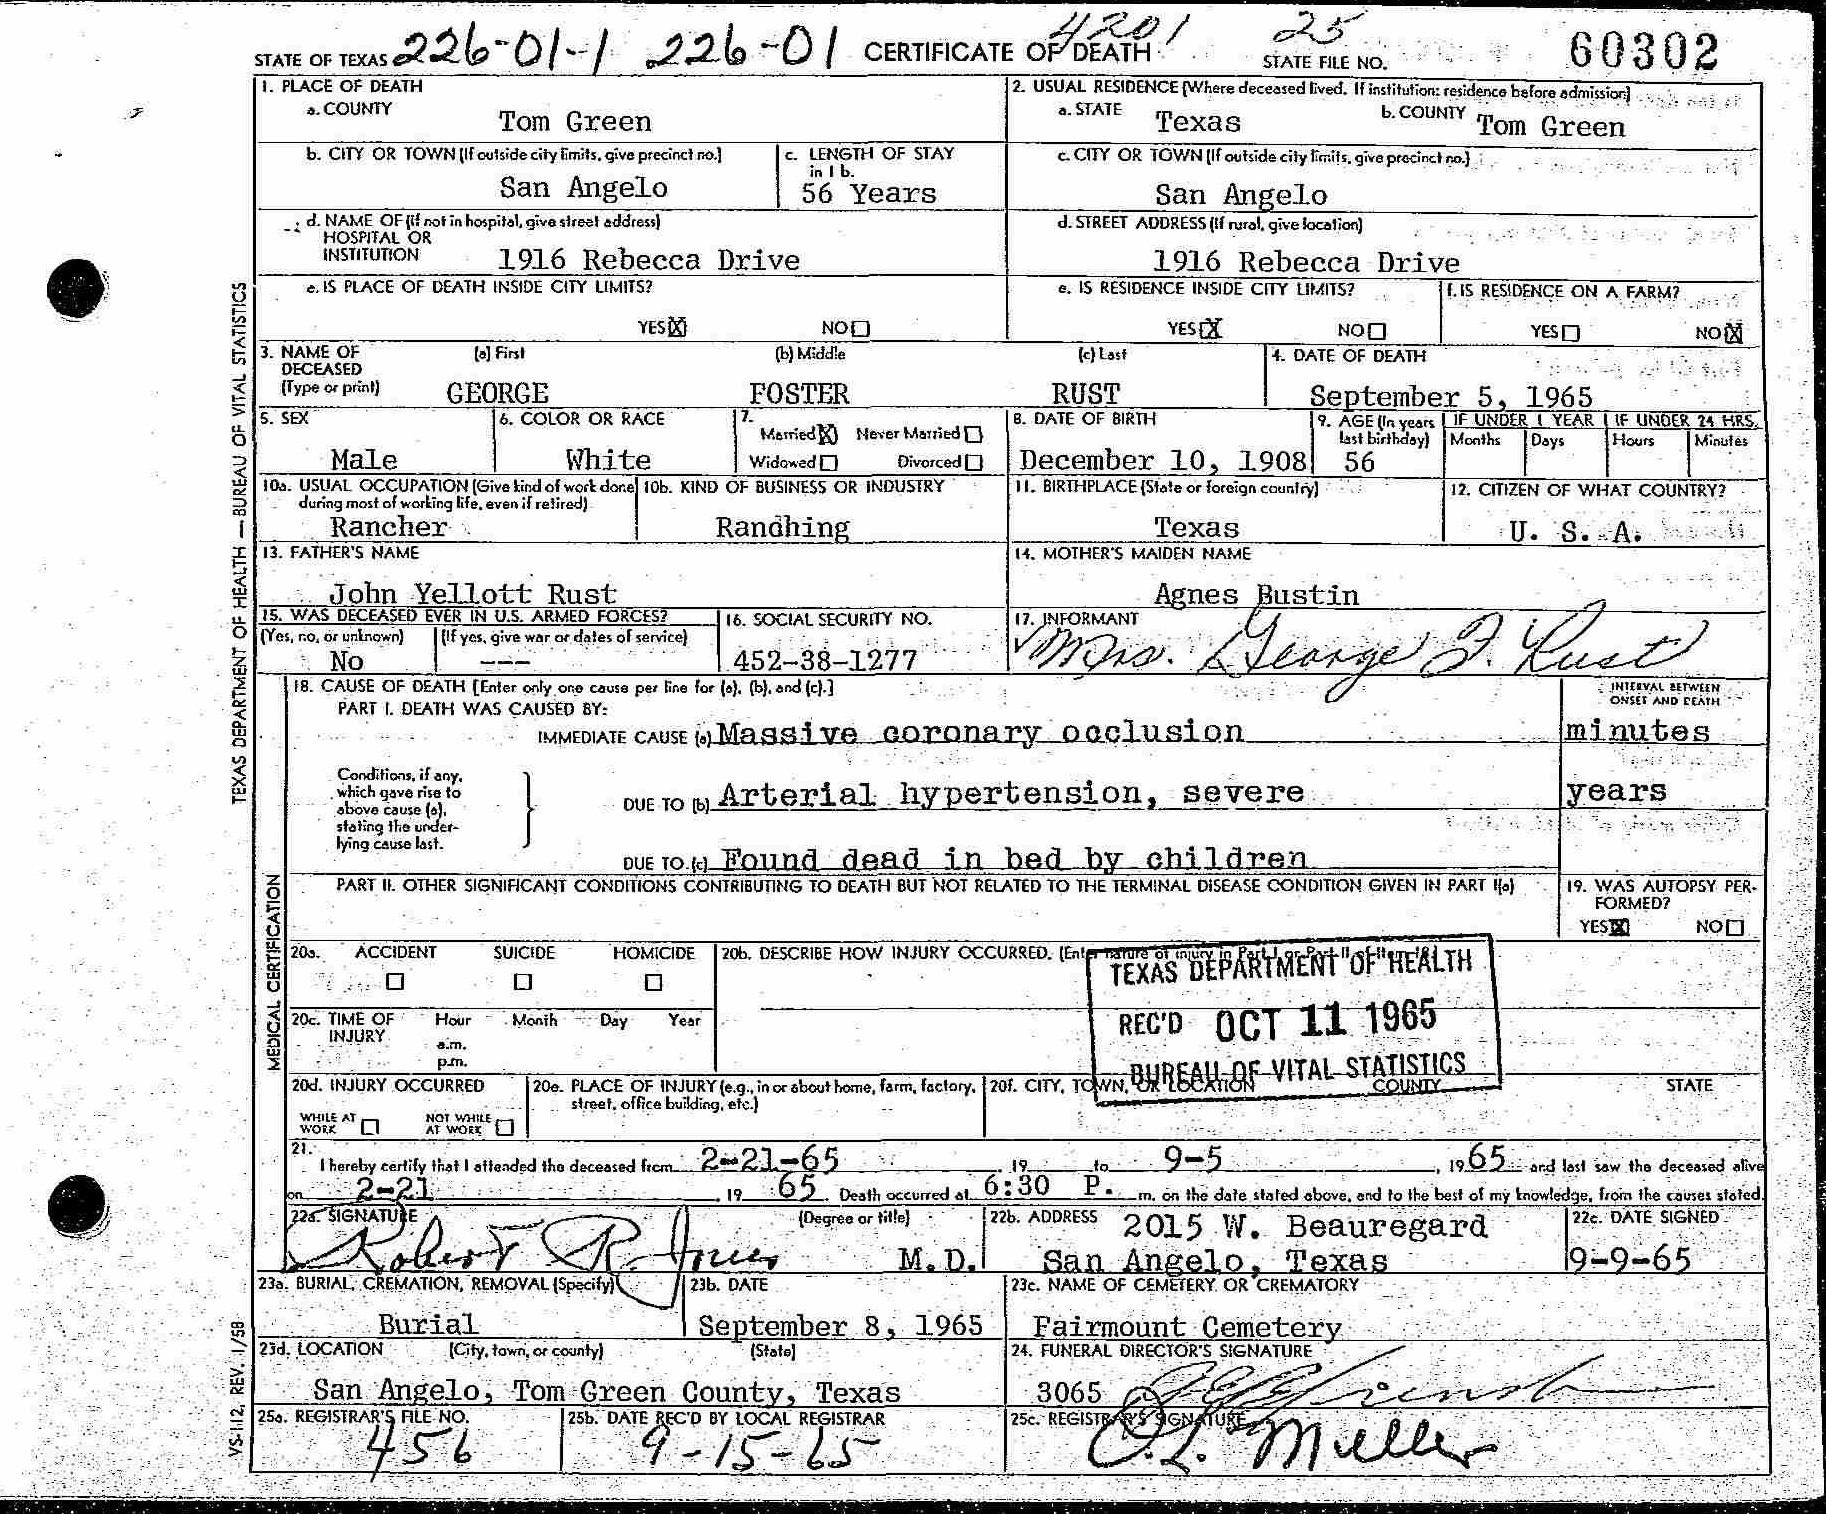 STATE OF TEXAS 226-01-1 226-01 CERTIFICATE OF DEATH 4201 25 STATE FILE NO. 60302
1. PLACE OF DEATH
a. COUNTY
Tom Green
2. USUAL RESIDENCE (Where deceased lived. If institution: residence before admission)
a. STATE Texas b. COUNTY Tom Green
b. CITY OR TOWN (If outside city limits, give precinct no.)
San Angelo
c. LENGTH OF STAY
in 1 b.
56 Years
c. CITY OR TOWN (If outside city limits, give precinct no.)
San Angelo
d. NAME OF (if not in hospital, give street address)
HOSPITAL OR
INSTITUTION 1916 Rebecca Drive
d. STREET ADDRESS (If rural, give location)
1916 Rebecca Drive
e. IS PLACE OF DEATH INSIDE CITY LIMITS?
YES X NO
e. IS RESIDENCE INSIDE CITY LIMITS?
YES X NO
f. IS RESIDENCE ON A FARM?
YES NO X
3. NAME OF
DECEASED
(Type or print)
(a) First (b) Middle (c) Last
GEORGE FOSTER RUST
4. DATE OF DEATH
September 5, 1965
5. SEX
Male
6. COLOR OR RACE
White
7.
Married X Never Married
Widowed Divorced
8. DATE OF BIRTH
December 10, 1908
9. AGE (In years
last birthday)
56
IF UNDER 1 YEAR IF UNDER 24 HRS.
Months Days Hours Minutes
10a. USUAL OCCUPATION (Give kind of work done
during most of working life, even if retired)
Rancher
10b. KIND OF BUSINESS OR INDUSTRY
Randhing
11. BIRTHPLACE (State or foreign country)
Texas
12. CITIZEN OF WHAT COUNTRY?
U. S. A.
13. FATHER'S NAME
John Yellott Rust
14. MOTHER'S MAIDEN NAME
Agnes Bustin
15. WAS DECEASED EVER IN U.S. ARMED FORCES?
(Yes, no, or unknown) (If yes, give war or dates of service)
No ---
16. SOCIAL SECURITY NO.
452-38-1277
17. INFORMANT
Mrs. George F. Rust
18. CAUSE OF DEATH [Enter only one cause per line for (a), (b), and (c).]
PART I. DEATH WAS CAUSED BY:
INTERVAL BETWEEN
ONSET AND DEATH
IMMEDIATE CAUSE (a) Massive coronary occlusion minutes
Conditions, if any,
which gave rise to
above cause (a),
stating the under-
lying cause last.
DUE TO (b) Arterial hypertension, severe years
DUE TO (c) Found dead in bed by children
PART II. OTHER SIGNIFICANT CONDITIONS CONTRIBUTING TO DEATH BUT NOT RELATED TO THE TERMINAL DISEASE CONDITION GIVEN IN PART I(a)
19. WAS AUTOPSY PER-
FORMED?
YES X NO
20a. ACCIDENT SUICIDE HOMICIDE
20b. DESCRIBE HOW INJURY OCCURRED. (Enter nature of injury in Part I or Part II
TEXAS DEPARTMENT OF HEALTH
REC'D OCT 11 1965
BUREAU OF VITAL STATISTICS
20c. TIME OF
INJURY
Hour Month Day Year
a.m.
p.m.
20d. INJURY OCCURRED
WHILE AT
WORK
NOT WHILE
AT WORK
20e. PLACE OF INJURY (e.g., in or about home, farm, factory,
street, office building, etc.)
20f. CITY, TOWN, OR LOCATION COUNTY STATE
21.
I hereby certify that I attended the deceased from 2-21-65 19 to 9-5, 1965 and last saw the deceased alive
on 2-21, 19 65. Death occurred at 6:30 P. m. on the date stated above, and to the best of my knowledge, from the causes stated.
22a. SIGNATURE (Degree or title)
Robert R. Jones M.D.
22b. ADDRESS 2015 W. Beauregard
San Angelo, Texas
22c. DATE SIGNED
9-9-65
23a. BURIAL, CREMATION, REMOVAL (Specify)
Burial
23b. DATE
September 8, 1965
23c. NAME OF CEMETERY OR CREMATORY
Fairmount Cemetery
23d. LOCATION (City, town, or county) (State)
San Angelo, Tom Green County, Texas
24. FUNERAL DIRECTOR'S SIGNATURE
3065
25a. REGISTRAR'S FILE NO.
456
25b. DATE REC'D BY LOCAL REGISTRAR
9-15-65
25c. REGISTRAR'S SIGNATURE
O. L. Miller
TEXAS DEPARTMENT OF HEALTH — BUREAU OF VITAL STATISTICS
MEDICAL CERTIFICATION
VS-112, REV. 1/58